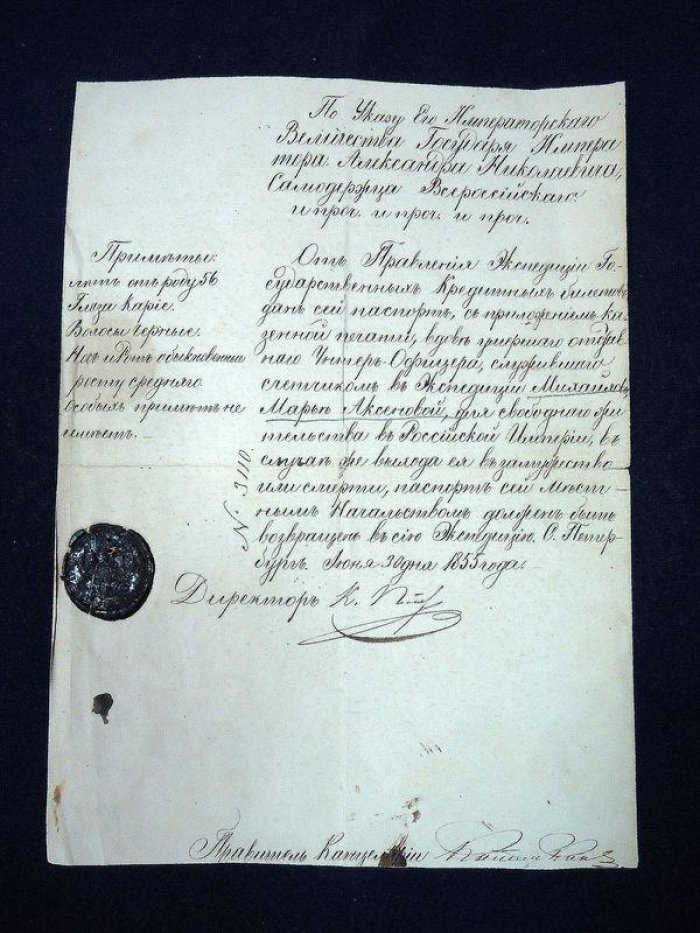 По Указу Его Императорскаго
Величества Государя Импера
тора Александра Николаевича,
Самодержца Всероссійскаго.
и проч. и проч. и проч.
Примѣты:
лѣтъ отъ роду 56
Глаза Каріе.
Волосы Черные.
Носъ и Ротъ обыкновенные
росту средняго
особыхъ примѣтъ не
имѣетъ.
Отъ Правленія Экспедиціи Го-
сударственныхъ Кредитныхъ билетовъ
данъ сей паспортъ, съ приложеніемъ ка-
зенной печати, вдовѣ умершаго отстав-
наго Унтеръ-Офицера, служившаго
счетчикомъ въ Экспедиціи Михайлова,
Марьѣ Аксеновой, для свободнаго жи-
тельства въ Россійской Имперіи, въ
случаѣ же выхода ея въ замужество
или смерти, паспортъ сей Мѣст-
нымъ Начальствомъ долженъ быть
возвращенъ въ сію Экспедицію. С. Петер-
бургъ. Іюня 30 дня 1855 года.
№ 3110.
Директоръ К.
Правитель Канцеляріи